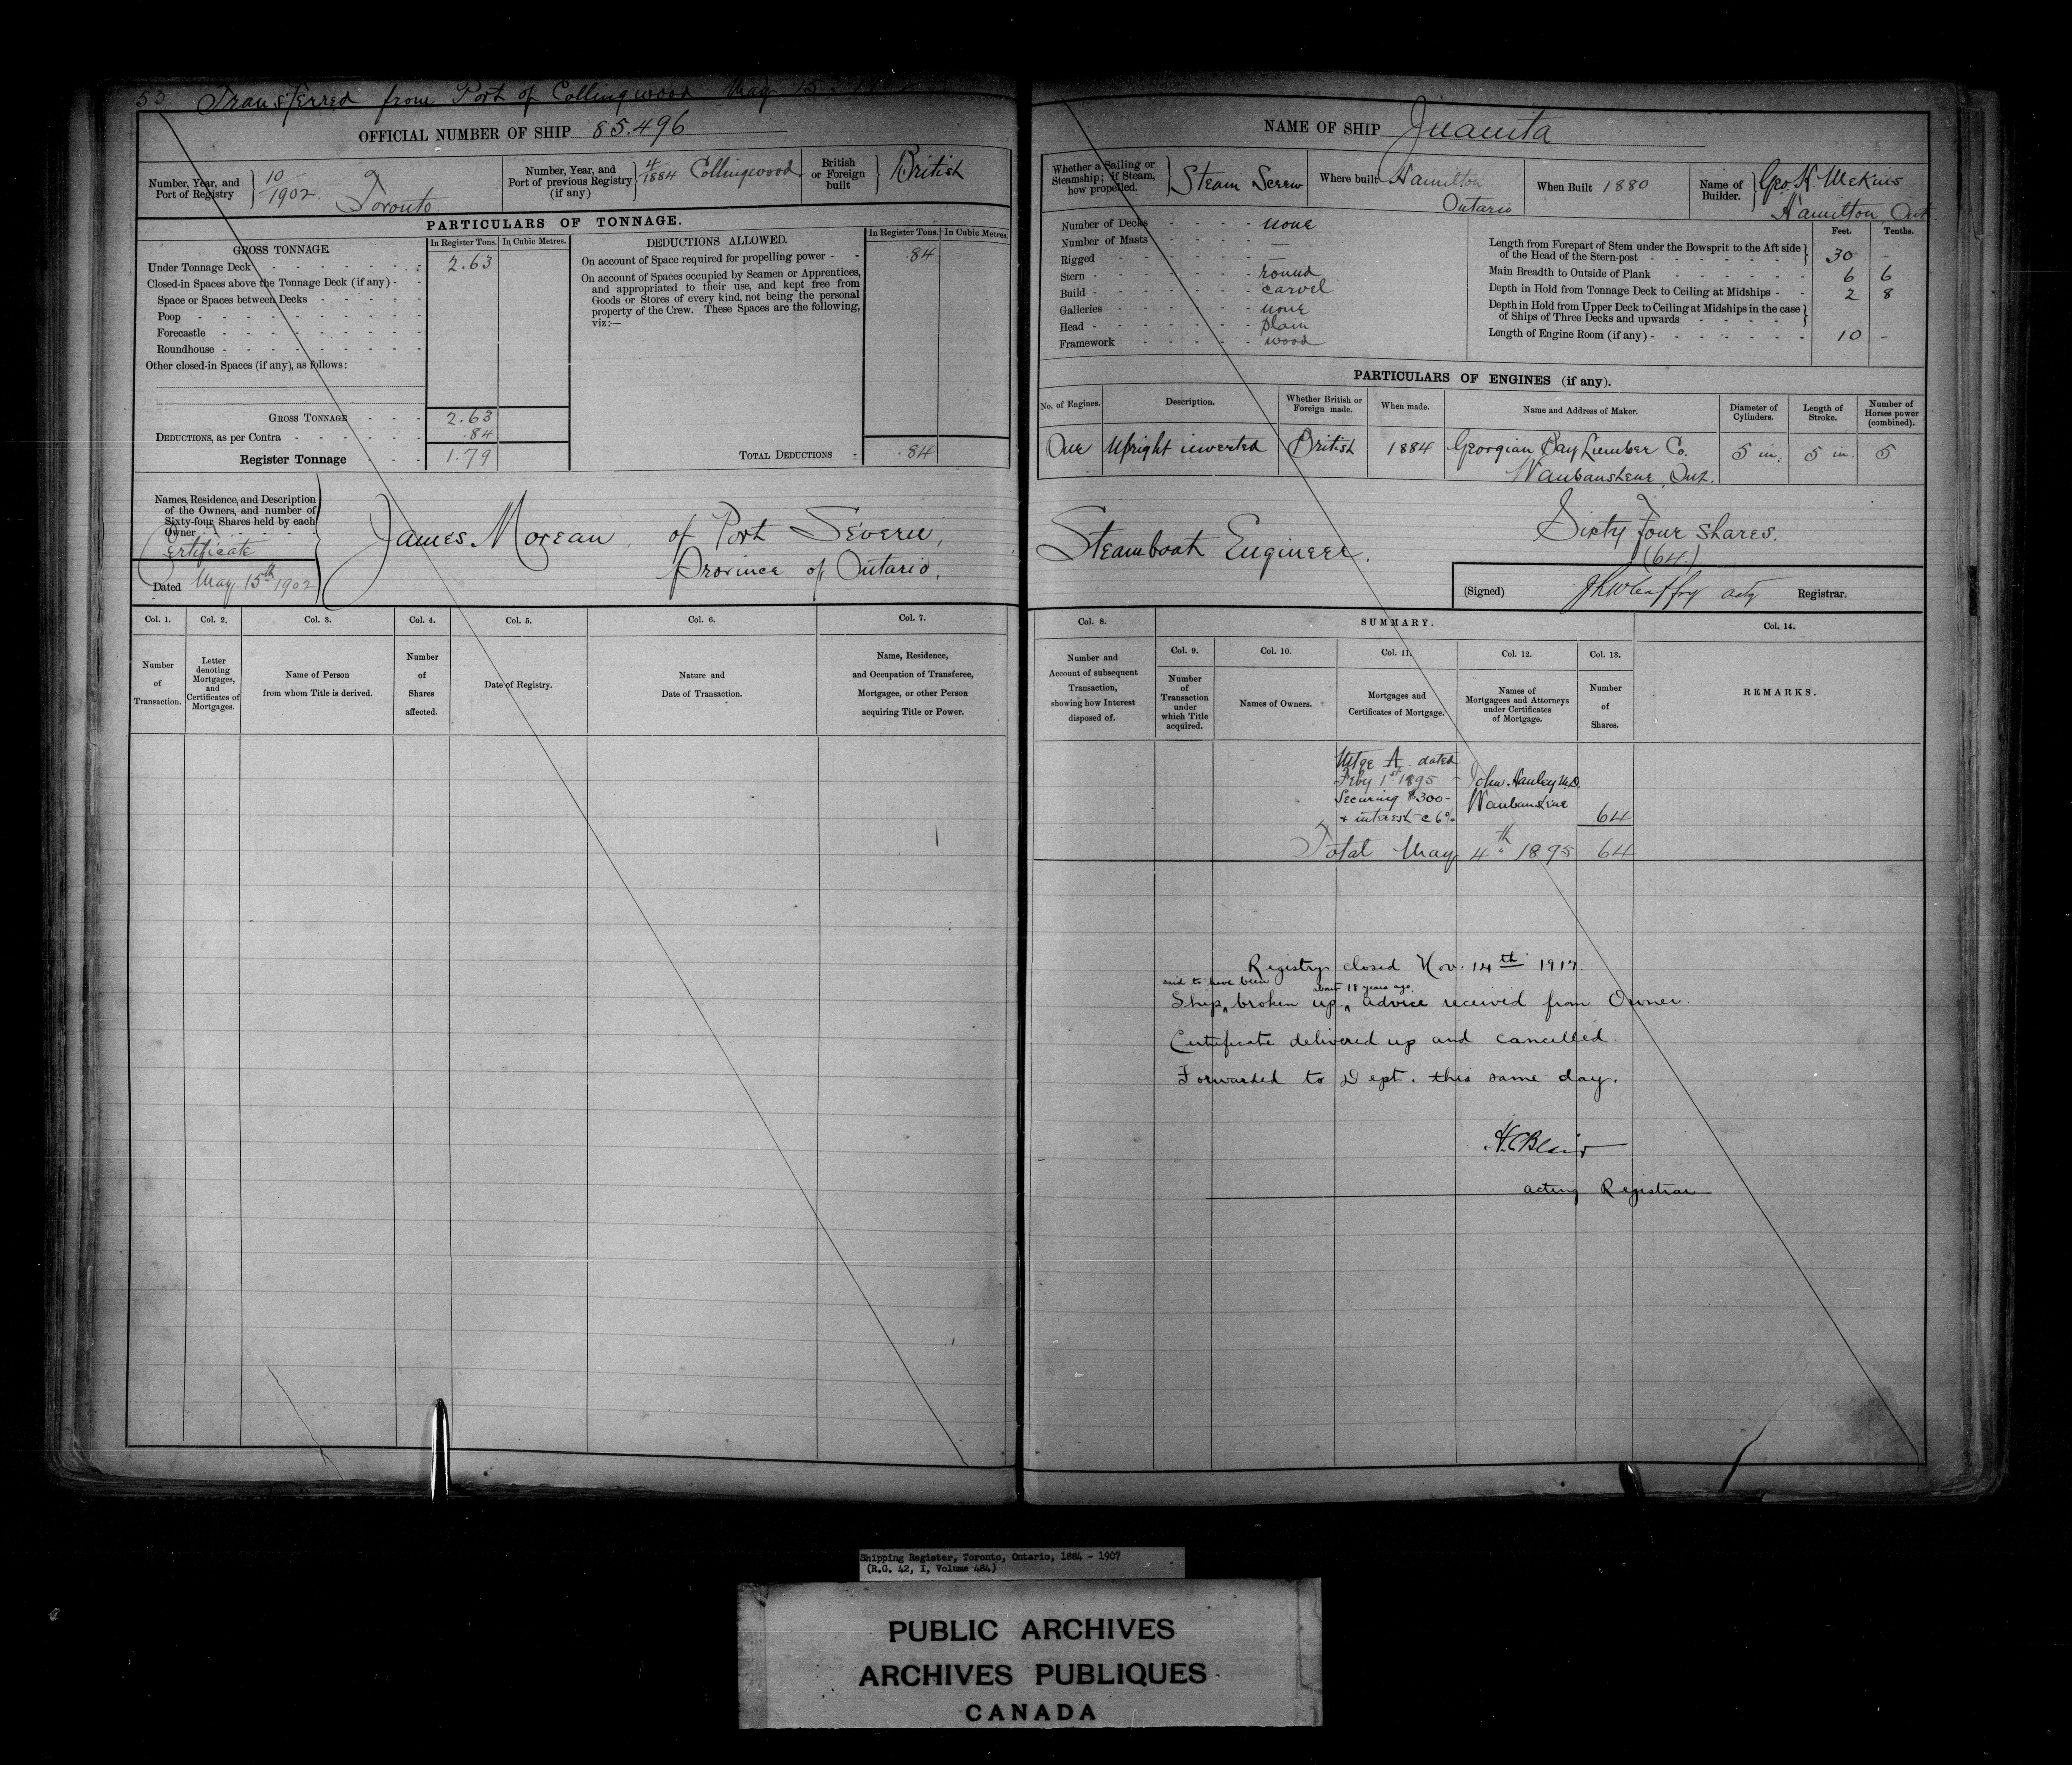 53. Transferred from Port of Collingwood May 15th 1902
OFFICIAL NUMBER OF SHIP 85.496
Number, Year, and Port of Registry } 10/1902. Toronto
Number, Year, and Port of previous Registry (if any) } 4/1884 Collingwood
British or Foreign built } British
PARTICULARS OF TONNAGE.
GROSS TONNAGE.
In Register Tons. In Cubic Metres.
Under Tonnage Deck 2.63
Closed-in Spaces above the Tonnage Deck (if any) -
Space or Spaces between Decks
Poop
Forecastle
Roundhouse
Other closed-in Spaces (if any), as follows:
GROSS TONNAGE 2.63
DEDUCTIONS, as per Contra .84
Register Tonnage 1.79
DEDUCTIONS ALLOWED.
In Register Tons. In Cubic Metres.
On account of Space required for propelling power - .84
On account of Spaces occupied by Seamen or Apprentices,
and appropriated to their use, and kept free from
Goods or Stores of every kind, not being the personal
property of the Crew. These Spaces are the following,
viz:—
TOTAL DEDUCTIONS - .84
Names, Residence, and Description
of the Owners, and number of
Sixty-four Shares held by each
Owner
Certificate
Dated May 15th 1902
James Moreau of Port Severn,
Province of Ontario.
Col. 1. Col. 2. Col. 3. Col. 4. Col. 5. Col. 6. Col. 7.
Number of Transaction.
Letter denoting Mortgages, and Certificates of Mortgages.
Name of Person from whom Title is derived.
Number of Shares affected.
Date of Registry.
Nature and Date of Transaction.
Name, Residence, and Occupation of Transferee, Mortgagee, or other Person acquiring Title or Power.
NAME OF SHIP Juanita
Whether a Sailing or Steamship; if Steam, how propelled. } Steam Screw
Where built Hamilton Ontario
When Built 1880
Name of Builder. } Geo. H. McKuis Hamilton Ont
Number of Decks - none
Number of Masts - —
Rigged - —
Stern - round
Build - carvel
Galleries - none
Head - plain
Framework - wood
Feet. Tenths.
Length from Forepart of Stem under the Bowsprit to the Aft side of the Head of the Stern-post 30 -
Main Breadth to Outside of Plank 6 6
Depth in Hold from Tonnage Deck to Ceiling at Midships - 2 8
Depth in Hold from Upper Deck to Ceiling at Midships in the case of Ships of Three Decks and upwards
Length of Engine Room (if any) - 10 -
PARTICULARS OF ENGINES (if any).
No. of Engines. Description. Whether British or Foreign made. When made. Name and Address of Maker. Diameter of Cylinders. Length of Stroke. Number of Horses power (combined).
One Upright inverted British 1884 Georgian Bay Lumber Co. 5 in. 5 in. 5
Waubaushene, Ont.
Steamboat Engineer.
Sixty Four Shares.
(64)
(Signed) acty Registrar.
Col. 8. SUMMARY. Col. 14.
Col. 9. Col. 10. Col. 11. Col. 12. Col. 13.
Number and Account of subsequent Transaction, showing how Interest disposed of.
Number of Transaction under which Title acquired.
Names of Owners.
Mortgages and Certificates of Mortgage.
Names of Mortgagees and Attorneys under Certificates of Mortgage.
Number of Shares.
REMARKS.
Mtge A dated
Feby 1st 1895 - John Hanley M.D.
Securing $300- Waubaushene
+ interest @ 6% 64
Total May 4th 1895 64
Registry closed Nov. 14th 1917.
said to have been about 18 years ago.
Ship broken up. advice received from Owner.
Certificate delivered up and cancelled.
Forwarded to Dept. this same day.
H.C. Blair
acting Registrar
Shipping Register, Toronto, Ontario, 1884 - 1907
(R.G. 42, I, Volume 484)
PUBLIC ARCHIVES
ARCHIVES PUBLIQUES
CANADA